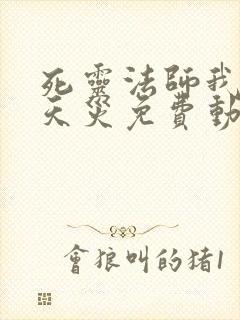 死靈法師我
天災免費動
會狼叫的猪1